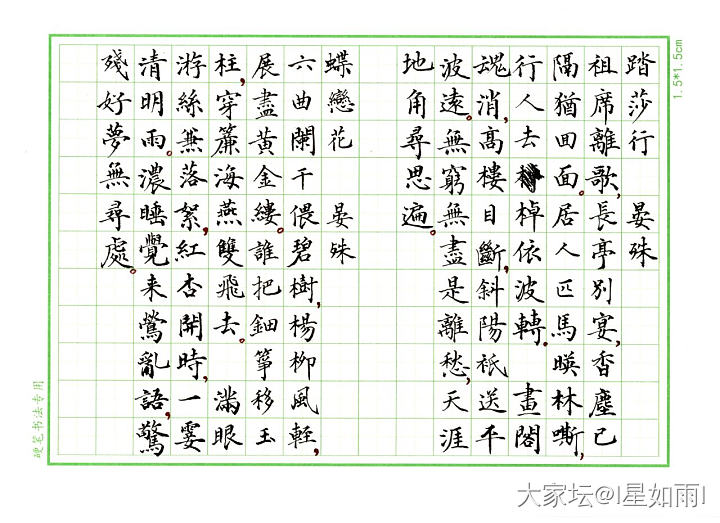 踏莎行 晏殊
祖席離歌,長亭別宴,香塵已
隔猶囬面。居人匹馬暎林嘶,
行人去棹依波轉。 畫閣
魂消,高樓目斷,斜陽衹送平
波遠。無窮無盡是離愁,天涯
地角尋思遍。
蝶戀花 晏殊
六曲闌干偎碧樹,楊柳風輕,
展盡黃金縷。誰把鈿箏移玉
柱,穿簾海燕雙飛去。 滿眼
游絲兼落絮,紅杏開時,一霎
清明雨。濃睡覺来鶯亂語,驚
殘好夢無尋處。
1.5*1.5cm
硬笔书法专用
大家坛@I星如雨I